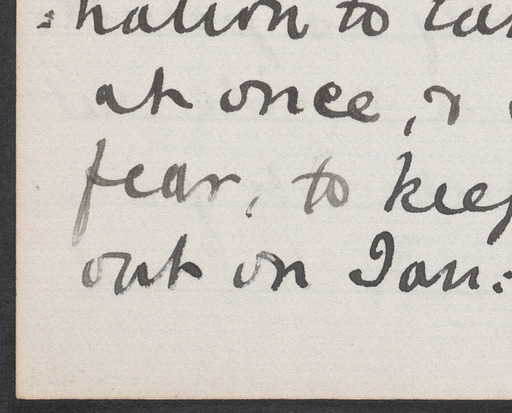 :nation to
at once, &
fear, to keep
out on Jan: